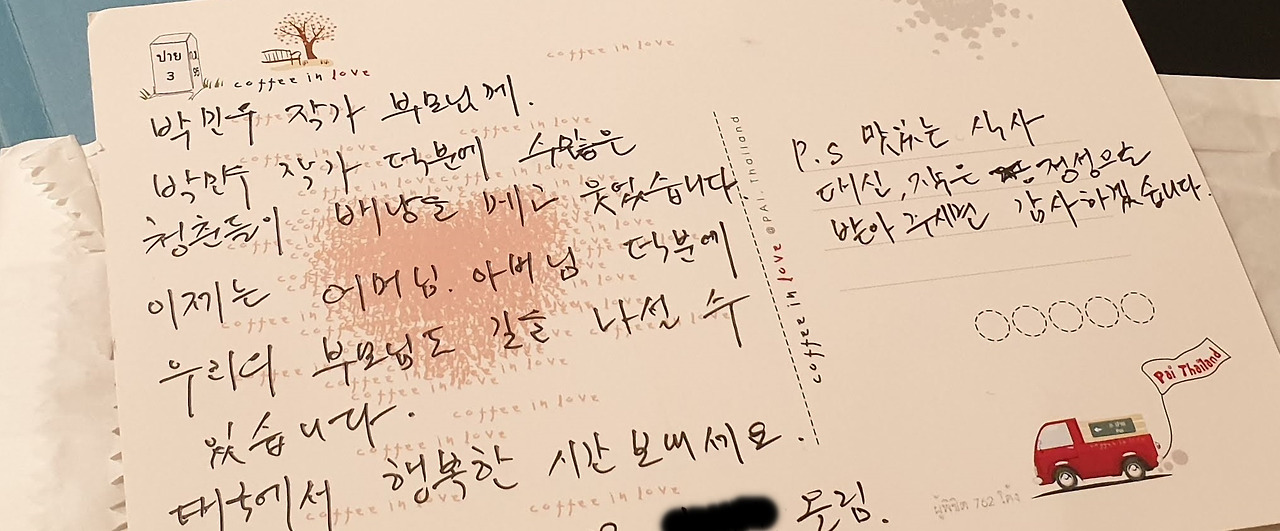 ปาย
3
coffee in love
coffee in love
박민우 작가 부모님께.
박민우 작가 덕분에 수많은
청춘들이 배낭을 메고 웃었습니다
이제는 어머님. 아버님 덕분에
우리의 부모님도 길을 나설 수
있습니다.
태국에서 행복한 시간 보내세요.
드림.
coffee in love @PAI, Thailand
P.S 맛있는 식사
대신, 작은 정성으로
받아 주시면 감사하겠습니다.
Pai Thailand
ผู้พิชิต 762 โค้ง